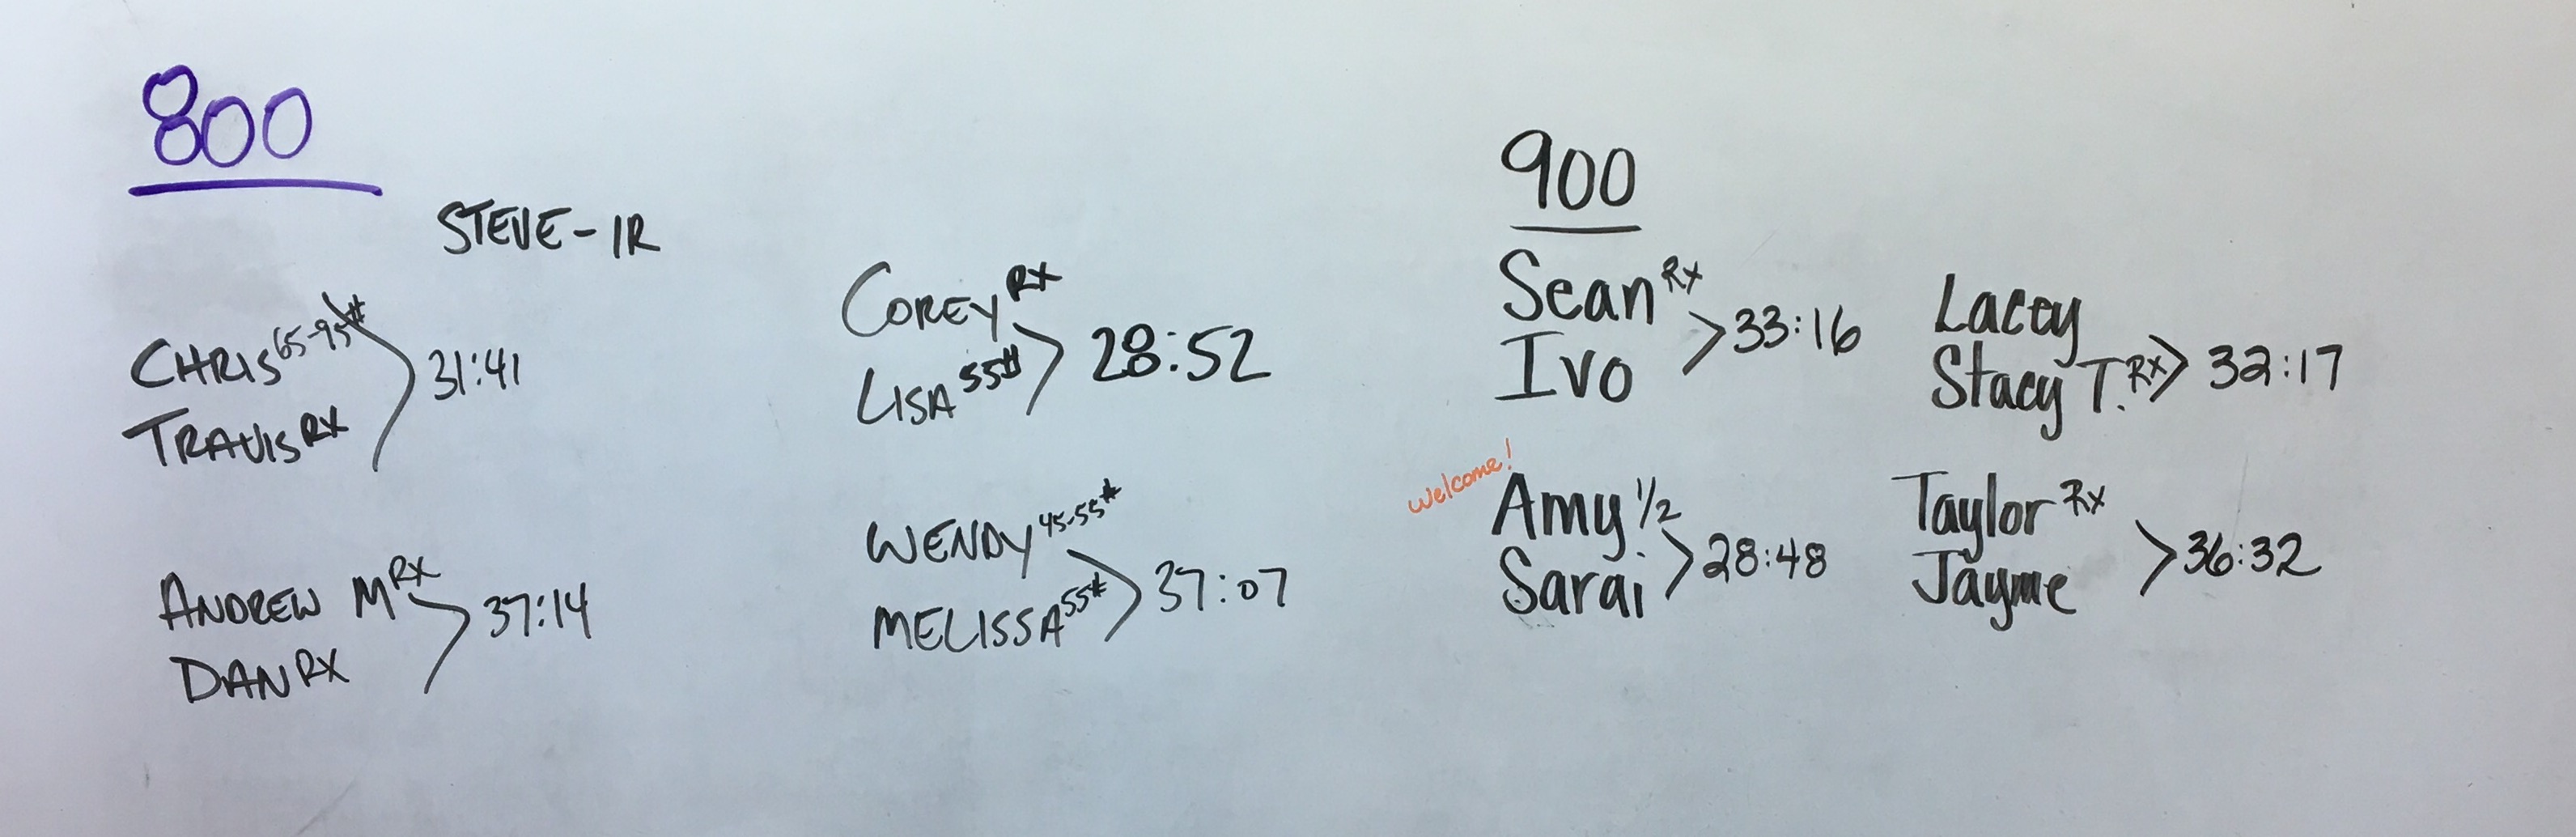 800
STEVE - IR
CHRIS 65-95#
TRAVIS RX
31:41
ANDREW M RX
DAN RX
37:14
COREY RX
LISA 55#
28:52
WENDY 45-55#
MELISSA 55#
37:07
900
Sean Rx
Ivo
33:16
welcome!
Amy 1/2
Sarai
28:48
Lacey
Stacy T. Rx
32:17
Taylor Rx
Jayme
36:32